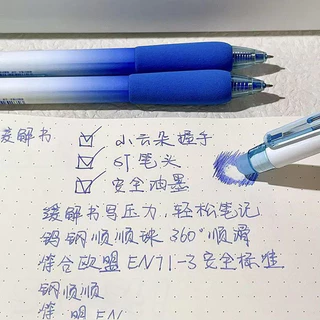 缓解书
小云朵握手
ST笔头
安全油墨
缓解书写压力,轻松笔记
钨钢顺顺球 360°顺滑
符合欧盟EN71-3安全标准
钢顺顺
盟 EN